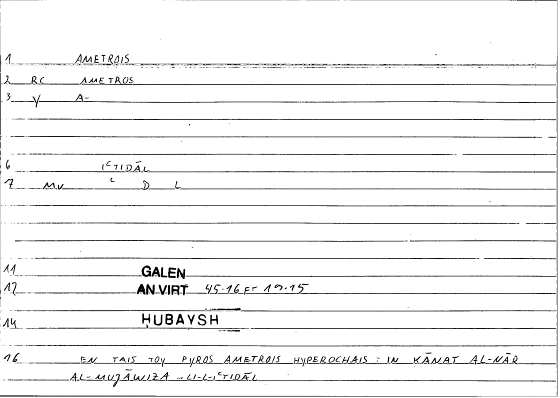 1 AMETROIS
2 RC AMETROS
3 V A-
6 IʿTIDĀL
7 MV ʿ D L
11 GALEN
12 AN VIRT 45.16 FF 19.15
14 ḤUBAYSH
16 EN TAIS TOY PYROS AMETROIS HYPEROCHAIS : IN KĀNAT AL-NĀR
AL-MUJĀWIZA LI-L-IʿTIDĀL